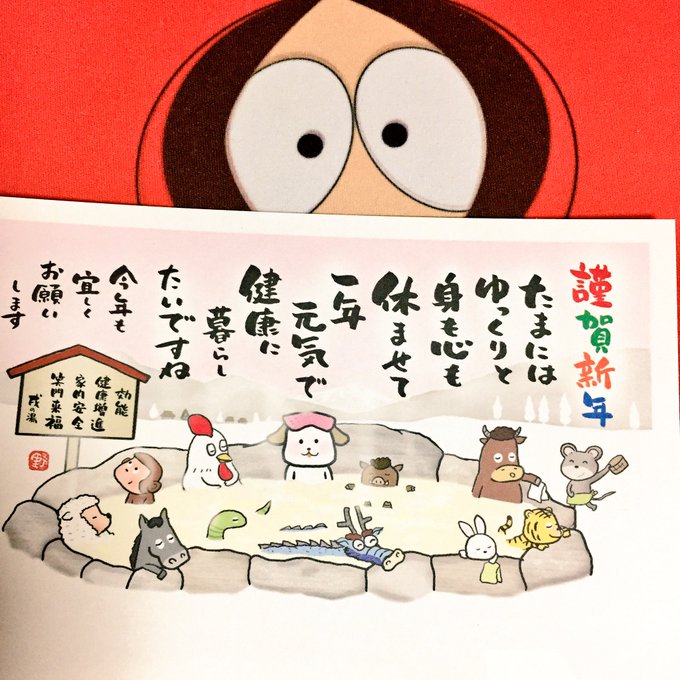 謹賀新年
たまには
ゆっくりと
身も心も
休ませて
一年
元気で
健康に
暮らし
たいですね
今年も
宜しく
お願い
します
効能
健康増進
家内安全
笑門来福
戌の湯